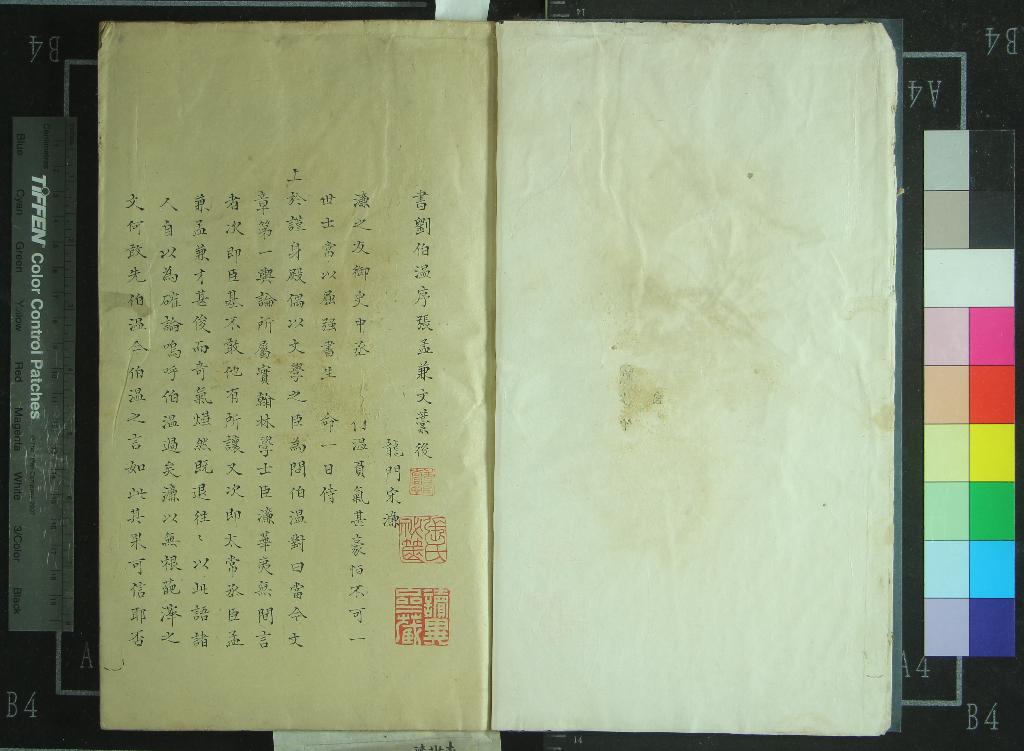 書劉伯溫序張孟兼文藁後
龍門宋濂
濂之友御史中丞 伯溫負氣甚豪恒不可一
世士常以屈强書生 命一日侍
上於謹身殿偶以文學之臣為問伯溫對曰當今文
章第一輿論所屬實翰林學士臣濂華夷無間言
者次即臣基不敢他有所讓又次即太常丞臣孟
兼孟兼才甚俊而奇氣燁然既退往〻以此語諸
人自以為確論嗚呼伯溫過矣濂以無根葩澤之
文何敢先伯溫今伯溫之言如此其果可信耶否
張氏
讀異
齋藏
B4
B4
A4
A4
B4
B4
TIFFEN Color Control Patches
Centimetres
Blue Cyan Green Yellow Red Magenta White 3/Color Black